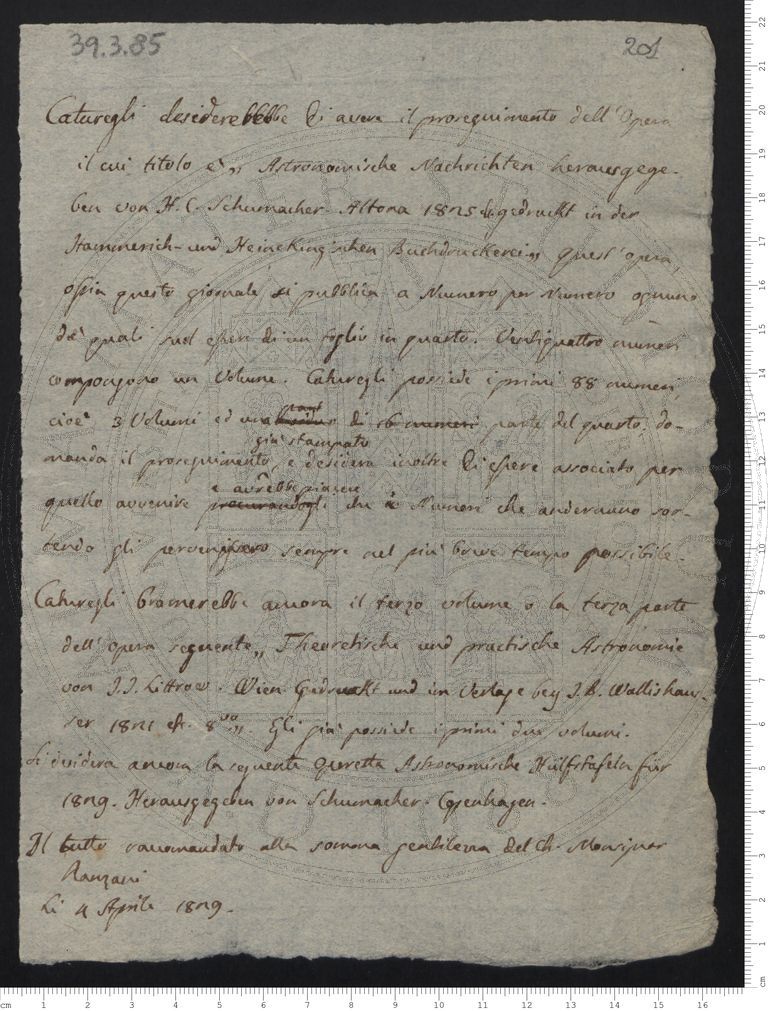 39.3.85
201
Caturegli desidererebbe di avere il proseguimento dell'Opera
il cui titolo è„ Astronomische Nachrichten herausgege-
ben von H. C. Schumacher. Altona 1825 gedruckt in der
Hammerich- und Heineking'schen Buchdruckerei„ Quest'opera,
ossia questo giornale si pubblica a Numero per Numero ognuno
de' quali suol essere di un foglio in quarto. Ventiquattro numeri
compongono un Volume. Caturegli possiede i primi 88 numeri
part
cioè 3 Volumi ed una di 16 numeri parte del quarto: do-
già stampato
manda il proseguimento, e desidera inoltre di essere associato per
e avrebbe piacere
quello avvenire procurandogli che i Numeri che anderanno sor-
tendo gli pervenissero sempre nel più breve tempo possibile.
Caturegli bramerebbe ancora il terzo volume o la terza parte
dell'opera seguente„ Theoretische und practische Astronomie
von J. J. Littrow. Wien Gedruckt und im Verlage bey J. B. Wallishaus-
ser 1821 8vo„. Egli già possiede i primi due volumi.
Si desidera ancora la seguente operetta Astronomische Hülfstafeln für
1829. Herausgegeben von Schumacher. Copenhagen.
Il tutto raccomandato alla somma gentilezza del Ch. Monsignor
Ranzani
Li 4 Aprile 1829.